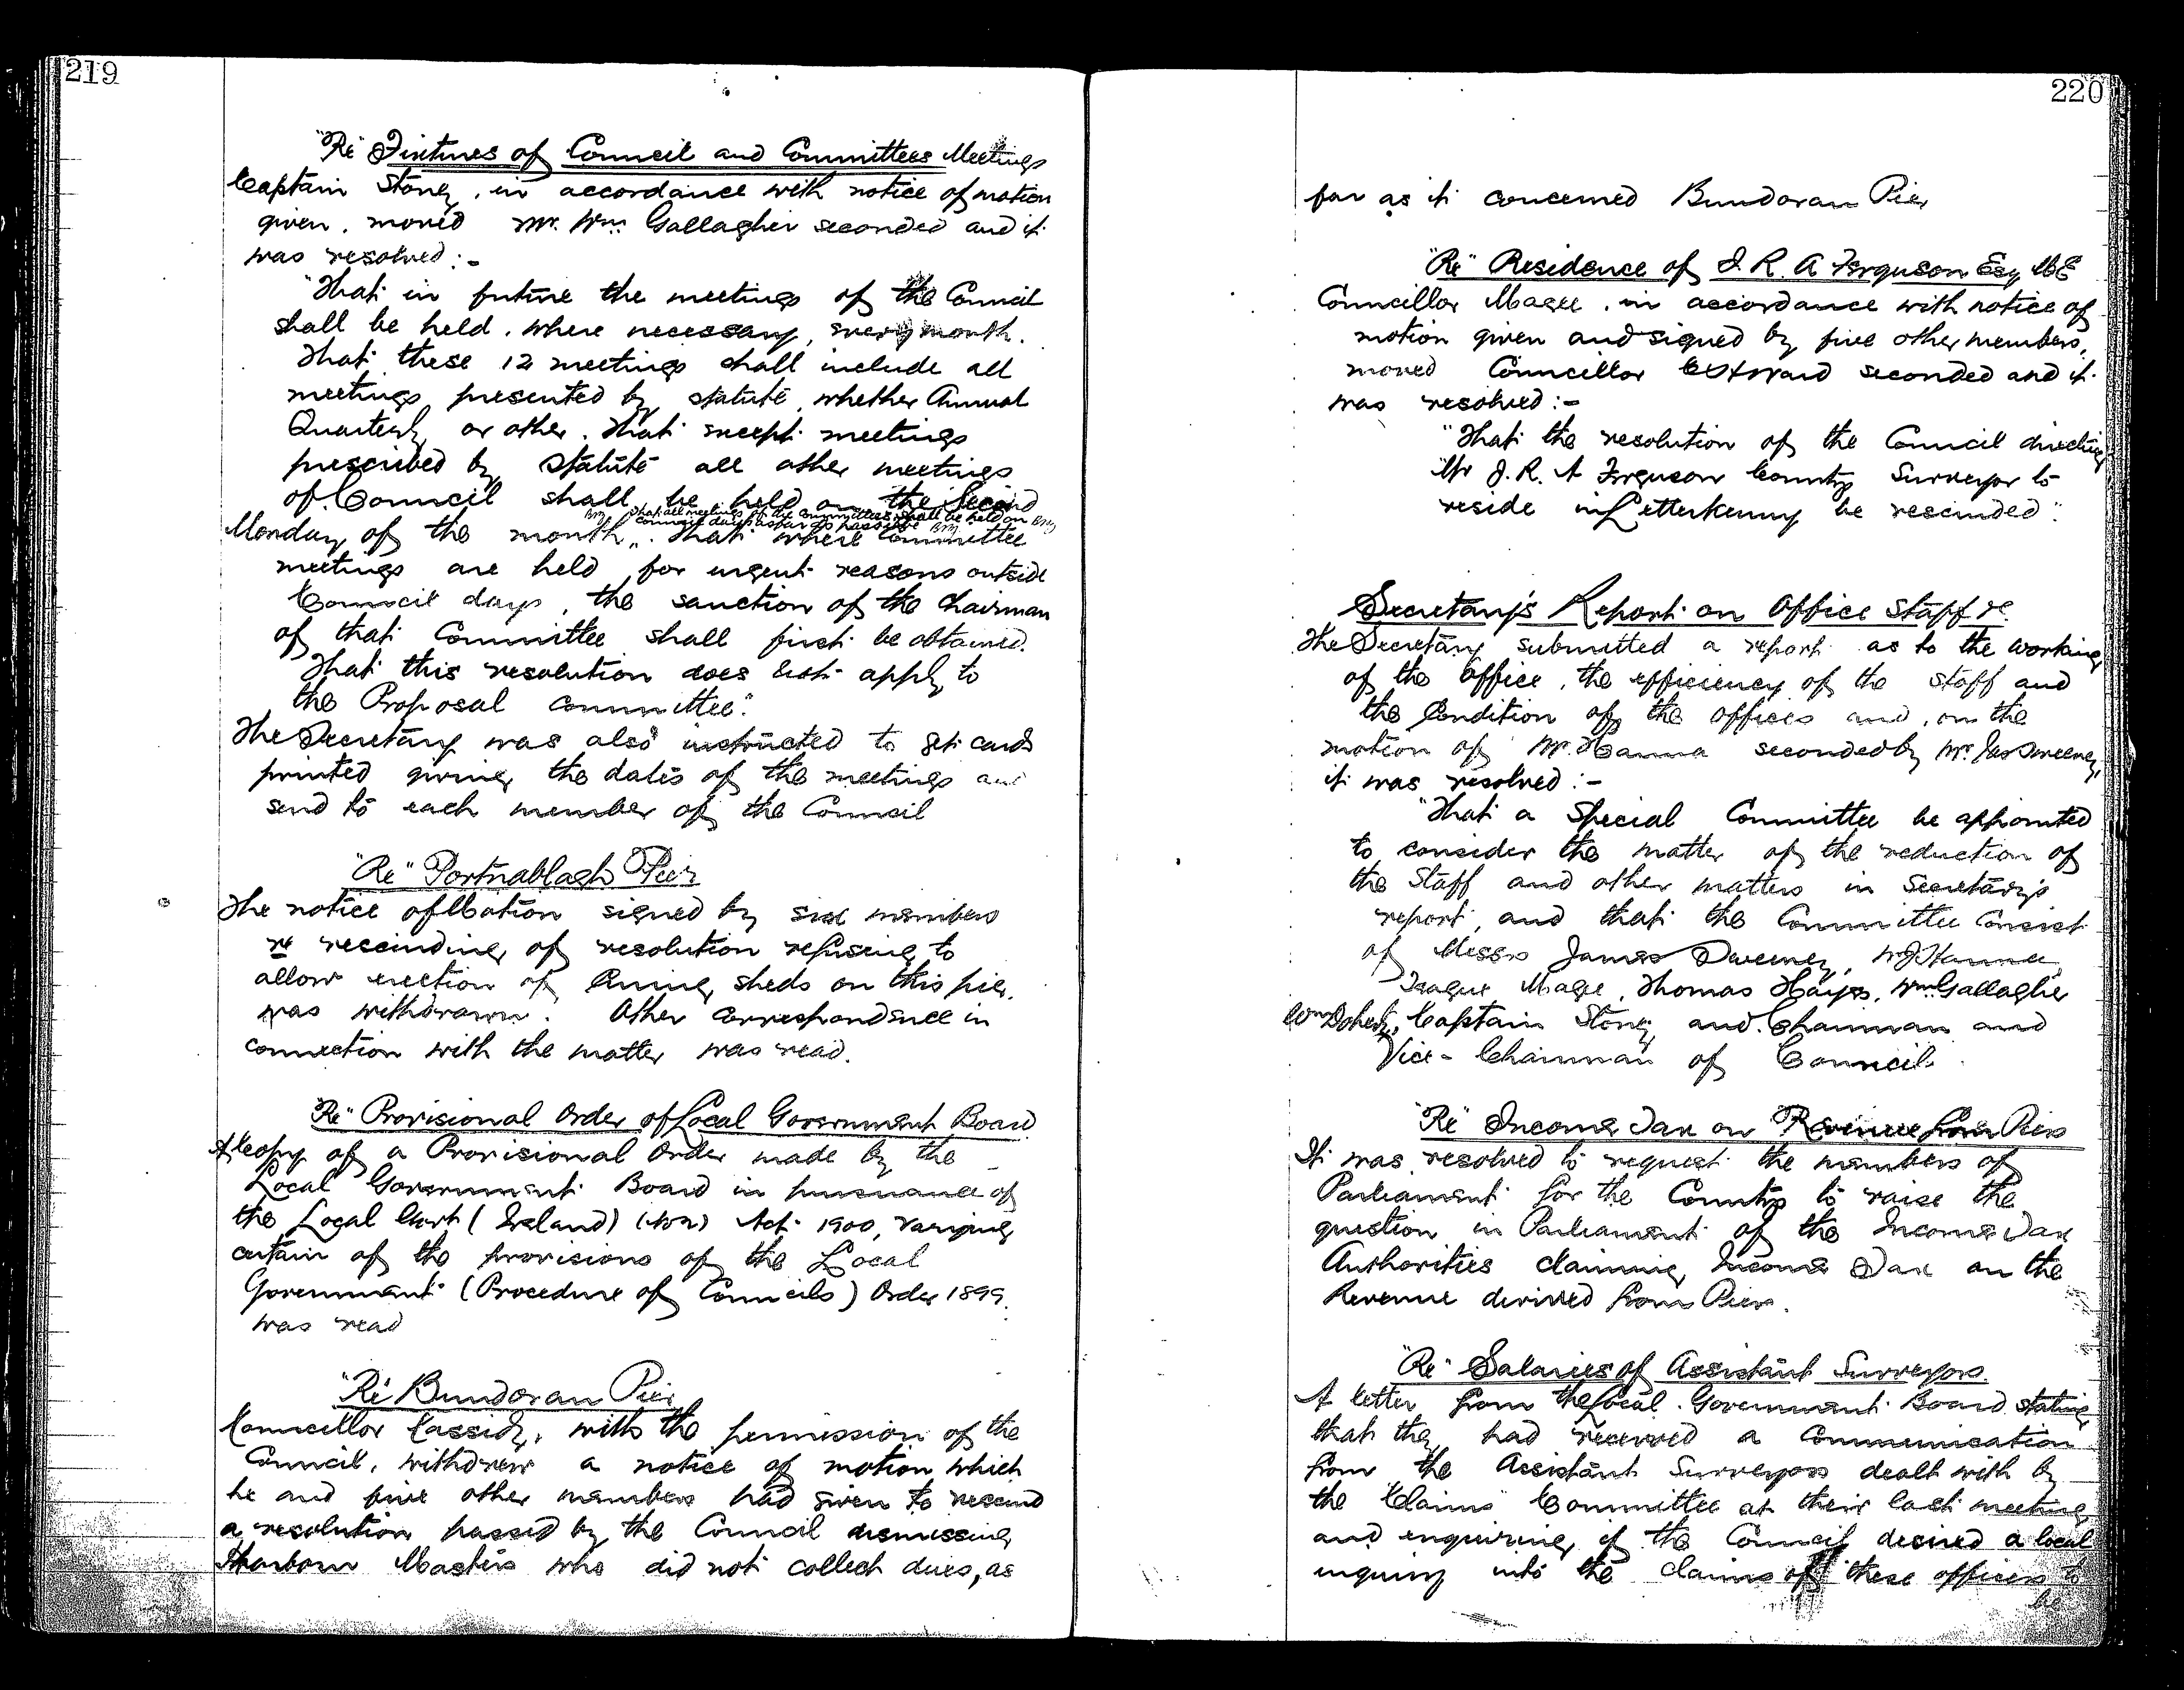 219
"Re" Fixtures of Council and Committees Meetings
Captain Stoney, in accordance with notice of motion
given, moved Mr. Wm. Gallagher seconded and it
was resolved:-
"That in future the meetings of the Council
shall be held, where necessary, every month.
That these 12 meetings shall include all
meetings presented by statute, whether Annual
Quarterly or other. That except meetings
prescribed by statute all other meetings
of Council shall be held on the Second
that all meetings of the Committees shall be held on
Council days as far as possible
Monday of the month. That where Committee
meetings are held for urgent reasons outside
Council days, the sanction of the Chairman
of that Committee shall first be obtained.
That this resolution does not apply to
the Proposal Committee".
The Secretary was also instructed to get cards
printed giving the dates of the meetings and
send to each member of the Council
"Re" Portnablagh Pier
The notice of Motion signed by six members
re rescinding of resolution refusing to
allow erection of Curing sheds on this pier,
was withdrawn. Other correspondence in
connection with the matter was read.
"Re" Provisional Order of Local Government Board
A Copy of a Provisional Order made by the
Local Government Board in pursuance of
the Local Govt (Ireland) (No 2) Act 1900, varying
certain of the provisions of the Local
Government (Procedure of Councils) Order 1899.
was read
"Re" Bundoran Pier
Councillor Cassidy, with the permission of the
Council, withdrew a notice of motion which
he and five other members had given to rescind
a resolution passed by the Council dismissing
Harbour Masters who did not collect dues, as
220
far as it concerned Bundoran Pier
"Re" Residence of J. R. A Ferguson Esq M E
Councillor Magee, in accordance with notice of
motion given and signed by five other members,
moved Councillor Eastward seconded and it
was resolved:-
"That the resolution of the Council directing
Mr J. R. A Ferguson County Surveyor to
reside in Letterkenny be rescinded".
Secretary's Report on Office Staff &c.
The Secretary submitted a report as to the working
of the Office, the efficiency of the staff and
the Condition of the offices and, on the
motion of Mr. Hanna seconded by Mr. Jas Sweeney,
it was resolved:-
"That a Special Committee be appointed
to consider the matter of the reduction of
the Staff and other matters in Secretary's
report, and that the Committee Consist
of Messrs James Sweeney, W J Hanna
Teague Magee, Thomas Hayes, Wm Gallagher
Wm Doherty, Captain Stoney and Chairman and
Vice-Chairman of Council.
"Re" Income Tax on Revenue from Piers
It was resolved to request the members of
Parliament for the County to raise the
question in Parliament of the Income Tax
Authorities claiming Income Tax on the
Revenue derived from Piers.
"Re" Salaries of Assistant Surveyors.
A letter from the Local Government Board stating
that they had received a Communication
from the Assistant Surveyors dealt with by
the "Claims" Committee at their last meeting
and enquiring if the Council desired a local
inquiry into the claims of these officers to
be